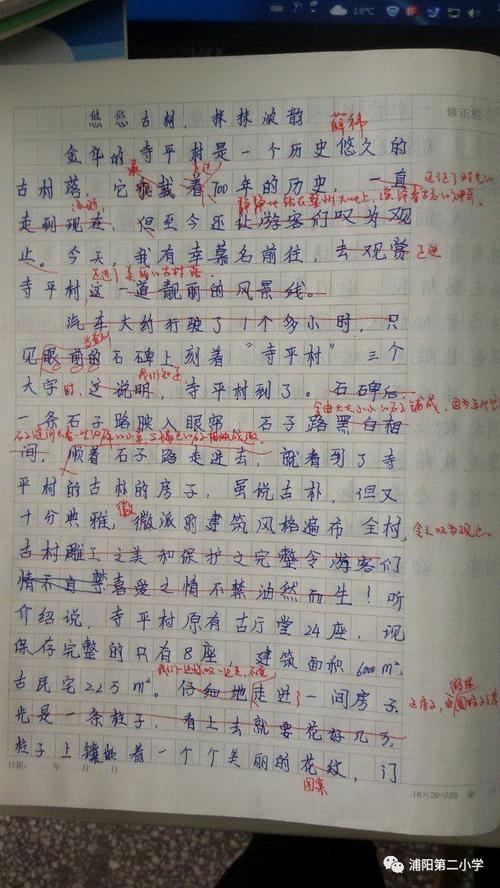 悠悠古村,抹抹浓韵
薛祎
修正栏
金华的寺平村是一个历史悠久的
古村落,它承载着700年的历史,一直
走到现在,但至今还让游客们叹为观
止。今天,我有幸慕名前往,去观赏
走进
走进了美丽的古村落
寺平村这一道靓丽的风景线。
汽车大约行驶了1个多小时,只
见眼前的石碑上刻着“寺平村”三个
我们知道
大字时,这说明,寺平村到了。石碑后,
全由大大小小的石子铺成
一条石子路映入眼帘,石子路黑白相
间,顺着石子路走进去,就看到了寺
平村的古朴的房子,虽说古朴,但又
徽
十分典雅,徽派的建筑风格遍布全村,
令人叹为观止
古村雕工之美和保护之完整令游客们
情不自禁喜爱之情不禁油然而生!听
介绍说,寺平村原有古厅堂24座,现
保存完整的只有8座,建筑面积6000m²,
古民宅2.2万m²。仔细地走进了一间房子,
光是一条柱子,看上去就要花好几万,
柱子上镶嵌着一个个美丽的花纹,订
图案
日期: 年 月 日
16×20=320 第
浦阳第二小学